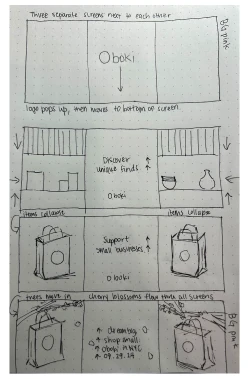 Three separate screens next to each other
BG pink
Oboki
logo pops up, then moves to bottom of screen
Discover
unique finds
Oboki
items collapse
items collapse
Support
small businesses
Oboki
trees move in
cherry blossoms flow thru all screens
BG pink
shop small
09.29.24